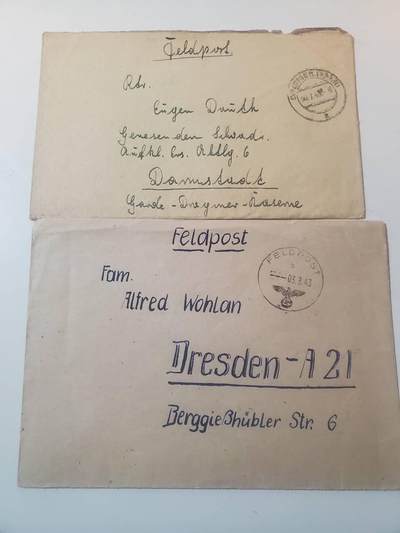 Feldpost
Rtr.
Eugen Druth
Genesenden Schwadr.
Aufkl. Ers. Abtlg. 6
Darmstadt
Garde-Dragoner-Kaserne
Feldpost
FELDPOST
03.3.43
Fam.
Alfred Wohlan
Dresden-A 21
Berggießhübler Str. 6